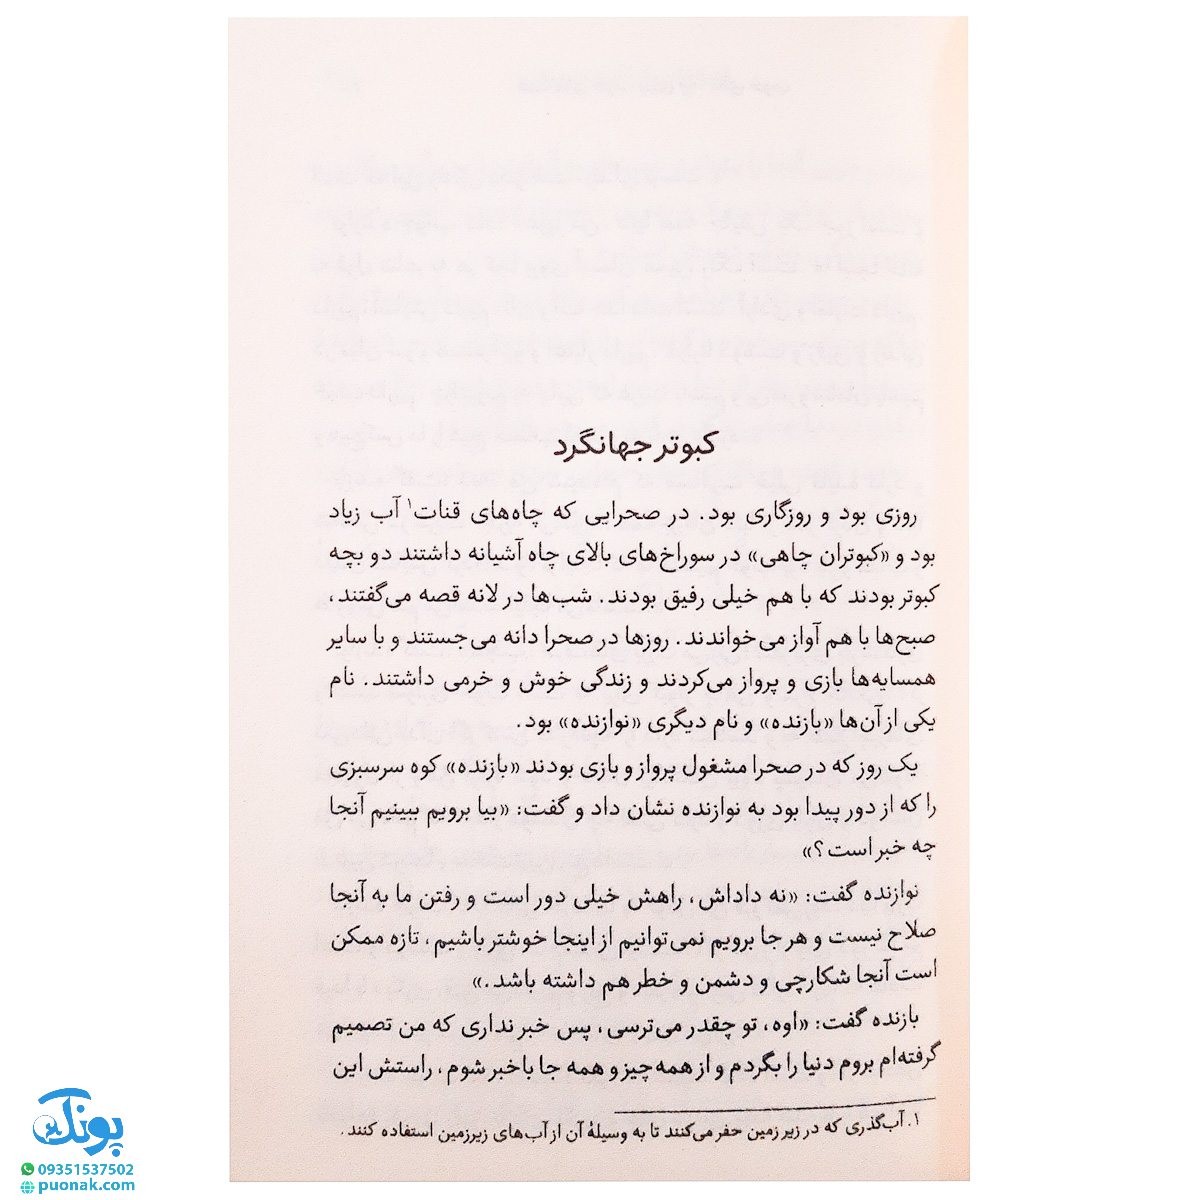 کبوتر جهانگرد
روزی بود و روزگاری بود. در صحرایی که چاه‌های قنات۱ آب زیاد
بود و «کبوتران چاهی» در سوراخ‌های بالای چاه آشیانه داشتند دو بچه
کبوتر بودند که با هم خیلی رفیق بودند. شب‌ها در لانه قصه می‌گفتند،
صبح‌ها با هم آواز می‌خواندند. روزها در صحرا دانه می‌جستند و با سایر
همسایه‌ها بازی و پرواز می‌کردند و زندگی خوش و خرمی داشتند. نام
یکی از آن‌ها «بازنده» و نام دیگری «نوازنده» بود.
یک روز که در صحرا مشغول پرواز و بازی بودند «بازنده» کوه سرسبزی
را که از دور پیدا بود به نوازنده نشان داد و گفت: «بیا برویم ببینیم آنجا
چه خبر است؟»
نوازنده گفت: «نه داداش، راهش خیلی دور است و رفتن ما به آنجا
صلاح نیست و هر جا برویم نمی‌توانیم از اینجا خوشتر باشیم، تازه ممکن
است آنجا شکارچی و دشمن و خطر هم داشته باشد.»
بازنده گفت: «اوه، تو چقدر می‌ترسی، پس خبر نداری که من تصمیم
گرفته‌ام بروم دنیا را بگردم و از همه چیز و همه جا باخبر شوم، راستش این
۱. آب‌گذری که در زیر زمین حفر می‌کنند تا به وسیلهٔ آن از آب‌های زیرزمین استفاده کنند.
پونک
09351537502
puonak.com